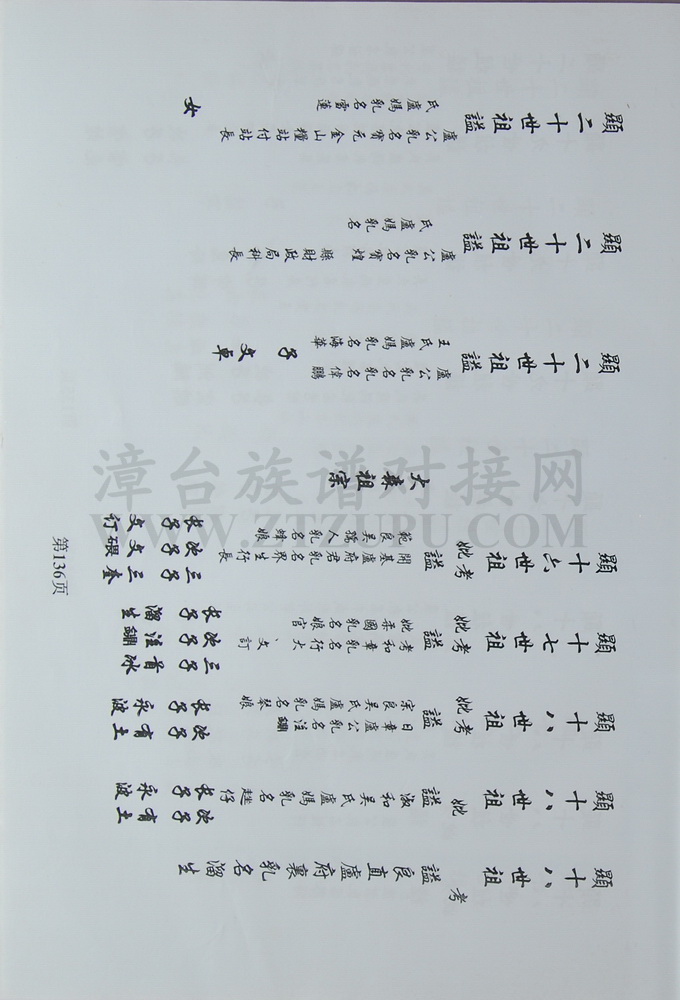 氏盧媽乳名雪蓮 女
顯二十世祖諡
盧公乳名寶元金山糧站付站長
氏盧媽乳名
顯二十世祖諡
盧公乳名寶煌縣財政局科長
王氏盧媽乳名海華 子文卓
顯二十世祖諡
盧公乳名乳名偉鵬
大森祖宗
長子文訂
妣範良吳孺人乳名蜂娘 次子文碨
顯十六世祖諡
考開基盧府君乳名界生行長 三子三奎
長子溜生
妣柔國乳名官娘
顯十七世祖諡 次子注鏰
考和章名行大、文訂
三子首冰
妣宗良吳氏盧媽乳名琴娘 長子永波
顯十八世祖諡
考日章盧公乳名注鏰 次子有土
長子永波
顯十八世祖諡妣淑和吳氏盧媽乳名仔
次子有土
顯十八世祖諡考良直盧府裏乳名溜生
第136页
漳台族谱对接网
WWW.ZTZUPU.COM